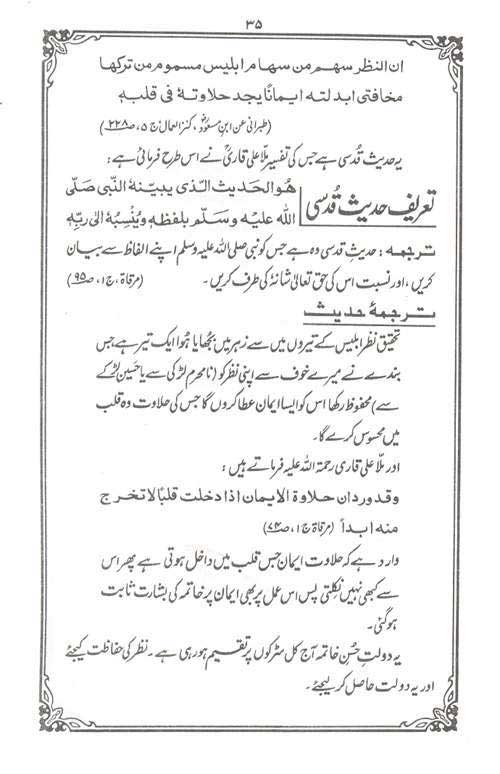 ۳۵
ان النظر سهم من سهام ابليس مسموم من تركها
مخافتى ابدلته ايمانًا يجد حلاوته فى قلبه
(طبرانی عن ابن مسعودؓ، کنز العمال ج ۵، ص۲۲۸)
یہ حدیث قُدسی ہے جس کی تفسیر ملا علی قاریؒ نے اس طرح فرمائی ہے:
تعریف حدیث قُدسی
هُوالحَديث الّذى يبيّنهُ النّبى صَلّى
الله عليْه وَسَلّم بلفظهٖ ويُنْسِبُهٗ الىٰ ربّهٖ
ترجمہ: حدیثِ قدسی وہ ہے جس کو نبی صلی اللہ علیہ وسلم اپنے الفاظ سے بیان
کریں، اور نسبت اس کی حق تعالیٰ شانہٗ کی طرف کریں۔ (مرقاۃ، ج ۱، ص۹۵)
ترجمۂ حدیث
تحقیق نظر ابلیس کے تیروں میں سے زہر میں بجھایا ہُوا ایک تیر ہے جس
بندے نے میرے خوف سے اپنی نظر کو (نامحرم لڑکی سے یا حَسین لڑکے
سے) محفوظ رکھا اس کو ایسا ایمان عطا کروں گا جس کی حلاوت وہ قلب
میں محسوس کرے گا۔
اور ملّا علی قاری رحمۃ اللہ علیہ فرماتے ہیں:
وقدوردان حلاوة الايمان اذا دخلت قلبًا لاتخرج
منه ابدأ (مرقاۃ ج ۱، ص۷۴)
وارد ہے کہ حلاوت ایمان جس قلب میں داخل ہوتی ہے پھر اس
سے کبھی نہیں نکلتی پس اس عمل پر بھی ایمان پر خاتمہ کی بشارت ثابت
ہو گئی۔
یہ دولتِ حُسنِ خاتمہ آج کل سڑکوں پر تقسیم ہو رہی ہے۔ نظر کی حفاظت کیجئے
اور یہ دولت حاصل کر لیجئے۔